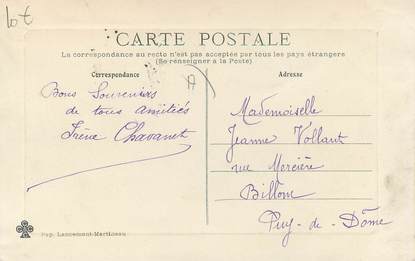 lot
CARTE POSTALE
La correspondance au recto n'est pas acceptée par tous les pays étrangers
(Se renseigner à la Poste)
Correspondance
Adresse
Bons Souvenirs
de tous amitiés
Irène Chavanet
Mademoiselle
Jeanne Vollant
rue Mercière
Billom
Puy-de-Dôme
Pap.